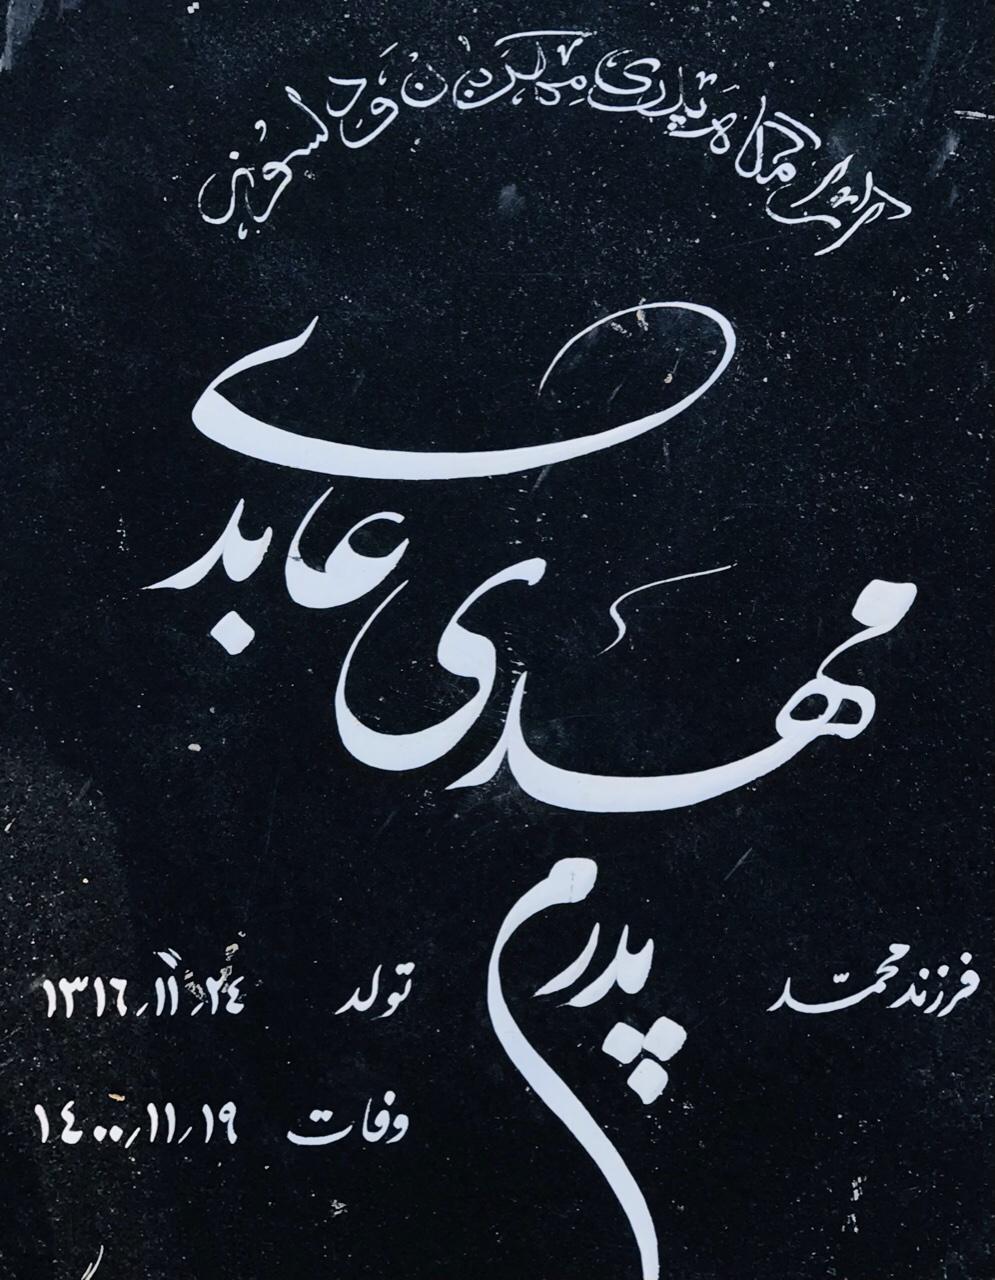 آرامگاه پدری مهربان و دلسوز
مهدی عابدی
پدرم
فرزند محمّد
تولد ۱۳۱۶٫۱۱٫۲٤
وفات ۱٤۰۰٫۱۱٫۱۹